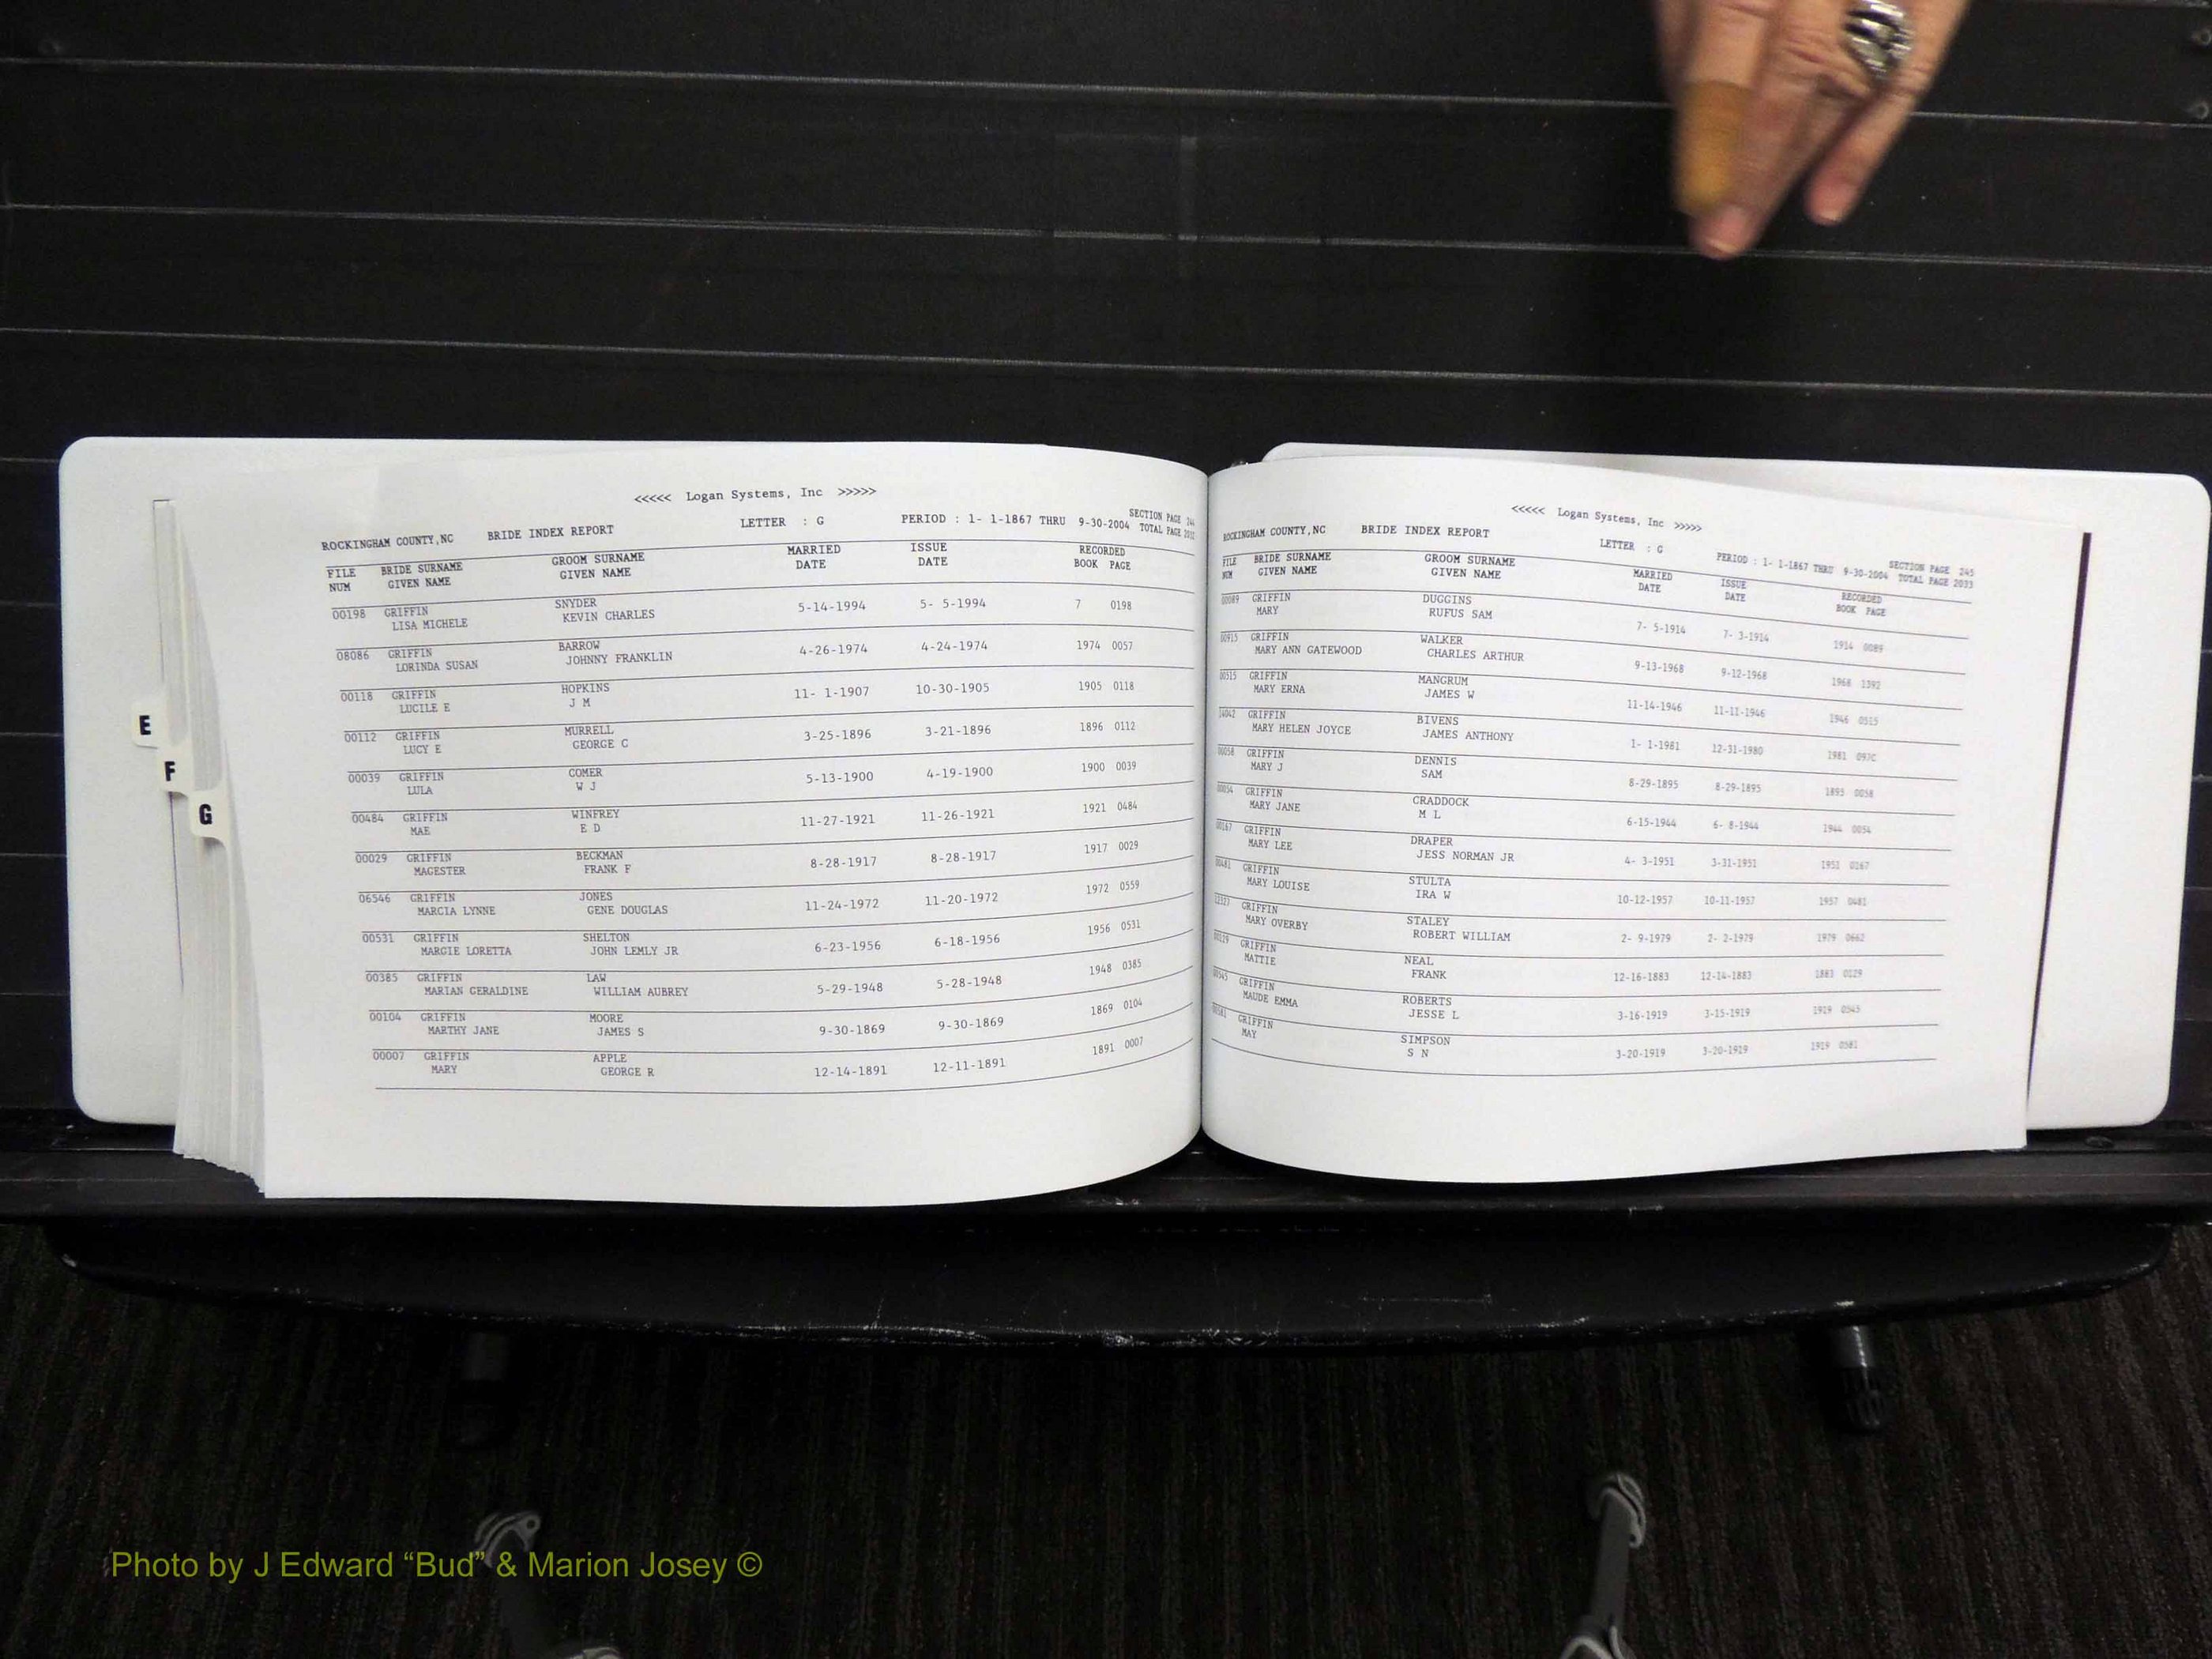 <<<<< Logan Systems, Inc >>>>>
ROCKINGHAM COUNTY,NC BRIDE INDEX REPORT LETTER : G PERIOD : 1- 1-1867 THRU 9-30-2004 SECTION PAGE 244
TOTAL PAGE
FILE BRIDE SURNAME GROOM SURNAME MARRIED ISSUE RECORDED
NUM GIVEN NAME GIVEN NAME DATE DATE BOOK PAGE
00198 GRIFFIN SNYDER 5-14-1994 5- 5-1994 7 0198
LISA MICHELE KEVIN CHARLES
08086 GRIFFIN BARROW 4-26-1974 4-24-1974 1974 0057
LORINDA SUSAN JOHNNY FRANKLIN
00118 GRIFFIN HOPKINS 11- 1-1907 10-30-1905 1905 0118
LUCILE E J M
00112 GRIFFIN MURRELL 3-25-1896 3-21-1896 1896 0112
LUCY E GEORGE C
00039 GRIFFIN COMER 5-13-1900 4-19-1900 1900 0039
LULA W J
00484 GRIFFIN WINFREY 11-27-1921 11-26-1921 1921 0484
MAE E D
00029 GRIFFIN BECKMAN 8-28-1917 8-28-1917 1917 0029
MAGESTER FRANK F
06546 GRIFFIN JONES 11-24-1972 11-20-1972 1972 0559
MARCIA LYNNE GENE DOUGLAS
00531 GRIFFIN SHELTON 6-23-1956 6-18-1956 1956 0531
MARGIE LORETTA JOHN LEMLY JR
00385 GRIFFIN LAW 5-29-1948 5-28-1948 1948 0385
MARIAN GERALDINE WILLIAM AUBREY
00104 GRIFFIN MOORE 9-30-1869 9-30-1869 1869 0104
MARTHY JANE JAMES S
00007 GRIFFIN APPLE 12-14-1891 12-11-1891 1891 0007
MARY GEORGE R
E
F
G
<<<<< Logan Systems, Inc >>>>>
ROCKINGHAM COUNTY,NC BRIDE INDEX REPORT LETTER : G PERIOD : 1- 1-1867 THRU 9-30-2004 SECTION PAGE 245
TOTAL PAGE 2033
FILE BRIDE SURNAME GROOM SURNAME MARRIED ISSUE RECORDED
NUM GIVEN NAME GIVEN NAME DATE DATE BOOK PAGE
00089 GRIFFIN DUGGINS 7- 5-1914 7- 3-1914 1914 0089
MARY RUFUS SAM
00915 GRIFFIN WALKER 9-13-1968 9-12-1968 1968 1392
MARY ANN GATEWOOD CHARLES ARTHUR
00515 GRIFFIN MANGRUM 11-14-1946 11-11-1946 1946 0515
MARY ERNA JAMES W
14042 GRIFFIN BIVENS 1- 1-1981 12-31-1980 1981
MARY HELEN JOYCE JAMES ANTHONY
00058 GRIFFIN DENNIS 8-29-1895 8-29-1895 1895 0058
MARY J SAM
00054 GRIFFIN CRADDOCK 6-15-1944 6- 8-1944 1944 0054
MARY JANE M L
00167 GRIFFIN DRAPER 4- 3-1951 3-31-1951 1951 0167
MARY LEE JESS NORMAN JR
00481 GRIFFIN STULTA 10-12-1957 10-11-1957 1957 0481
MARY LOUISE IRA W
GRIFFIN STALEY 2- 9-1979 2- 2-1979 1979 0662
MARY OVERBY ROBERT WILLIAM
00129 GRIFFIN NEAL 12-16-1883 12-14-1883 1883 0129
MATTIE FRANK
00545 GRIFFIN ROBERTS 3-16-1919 3-15-1919 1919 0545
MAUDE EMMA JESSE L
00581 GRIFFIN SIMPSON 3-20-1919 3-20-1919 1919 0581
MAY S N
Photo by J Edward “Bud” & Marion Josey ©